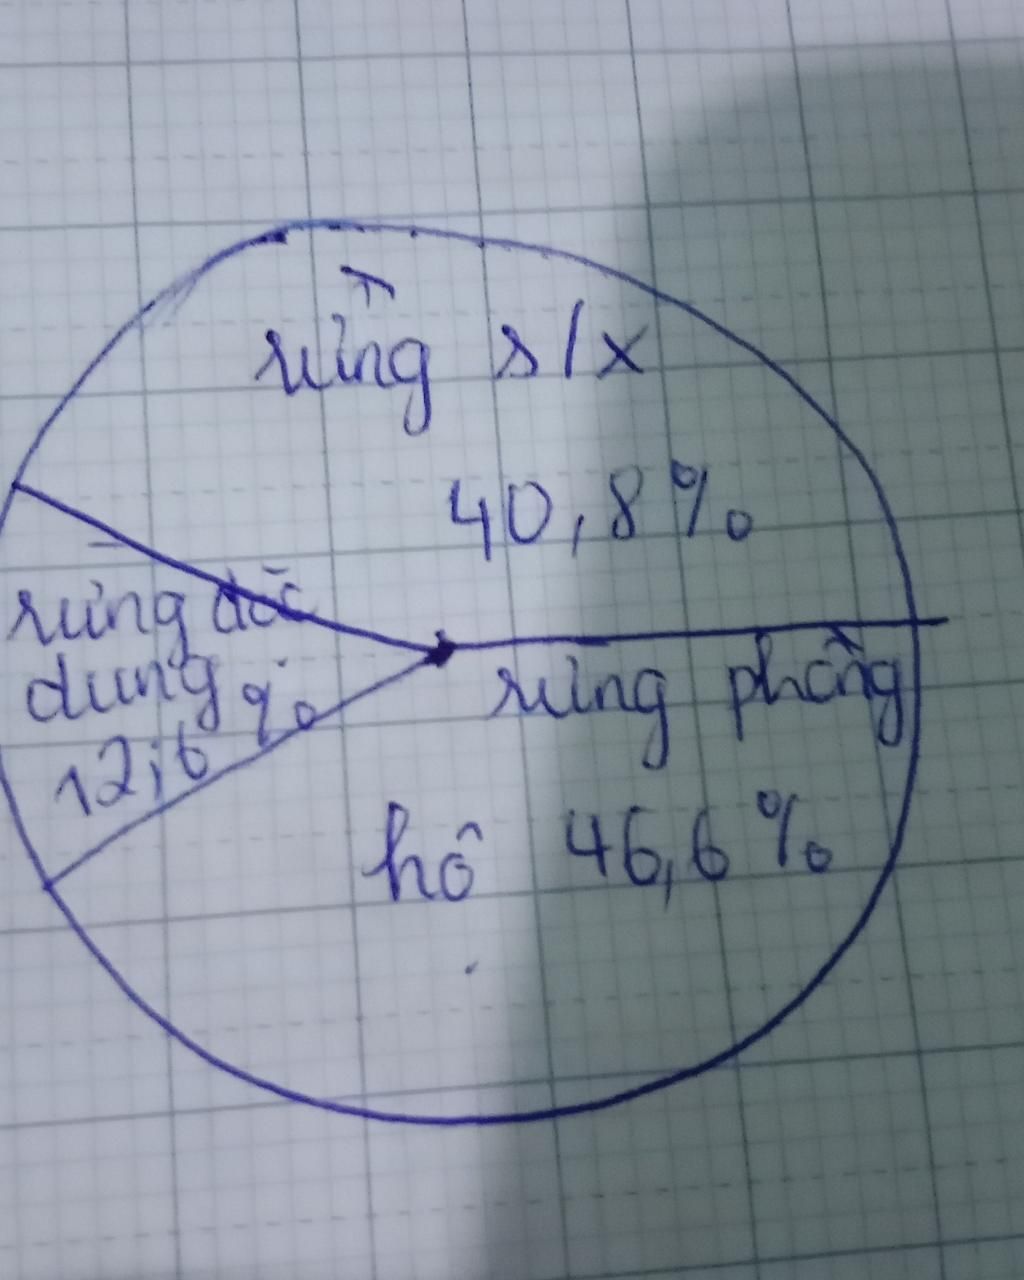 rừng s/x
40,8%
rừng đặc
dụng %
12,6
rừng phồng
hô 46,6%